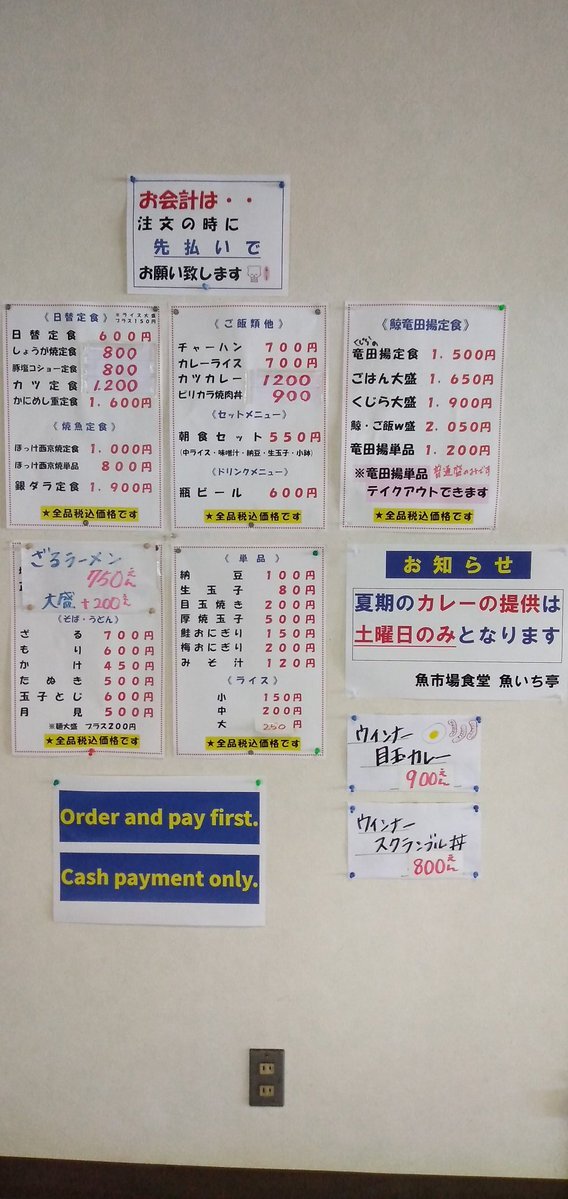 お会計は・・
注文の時に
先払いで
お願い致します
《日替定食》
※ライス大盛
プラス150円
日替定食 600円
しょうが焼定食 800
豚塩コショー定食 800
カツ定食 1.200
かにめし重定食 1.600円
《焼魚定食》
ほっけ西京焼定食 1.000円
ほっけ西京焼単品 800円
銀ダラ定食 1.900円
★全品税込価格です
《ご飯類他》
チャーハン 700円
カレーライス 700円
カツカレー 1200
ピリカラ焼肉丼 900
《セットメニュー》
朝食セット 550円
(中ライス・味噌汁・納豆・生玉子・小鉢)
《ドリンクメニュー》
瓶ビール 600円
★全品税込価格です
《鯨竜田揚定食》
くじらの
竜田揚定食 1.500円
ごはん大盛 1.650円
くじら大盛 1.900円
鯨・ご飯w盛 2.050円
竜田揚単品 1.200円
※竜田揚単品 普通盛のみです
テイクアウトできます
★全品税込価格です
ざるラーメン
750えん
大盛 +200えん
《そば・うどん》
ざる 700円
もり 600円
かけ 450円
たぬき 500円
玉子とじ 600円
月見 500円
※麺大盛 プラス200円
★全品税込価格です
《単品》
納豆 100円
生玉子 80円
目玉焼き 200円
厚焼玉子 500円
鮭おにぎり 150円
梅おにぎり 200円
みそ汁 120円
《ライス》
小 150円
中 200円
大 250円
★全品税込価格です
お知らせ
夏期のカレーの提供は
土曜日のみとなります
魚市場食堂 魚いち亭
ウインナー
目玉カレー
900えん
ウインナー
スクランブル丼
800えん
Order and pay first.
Cash payment only.